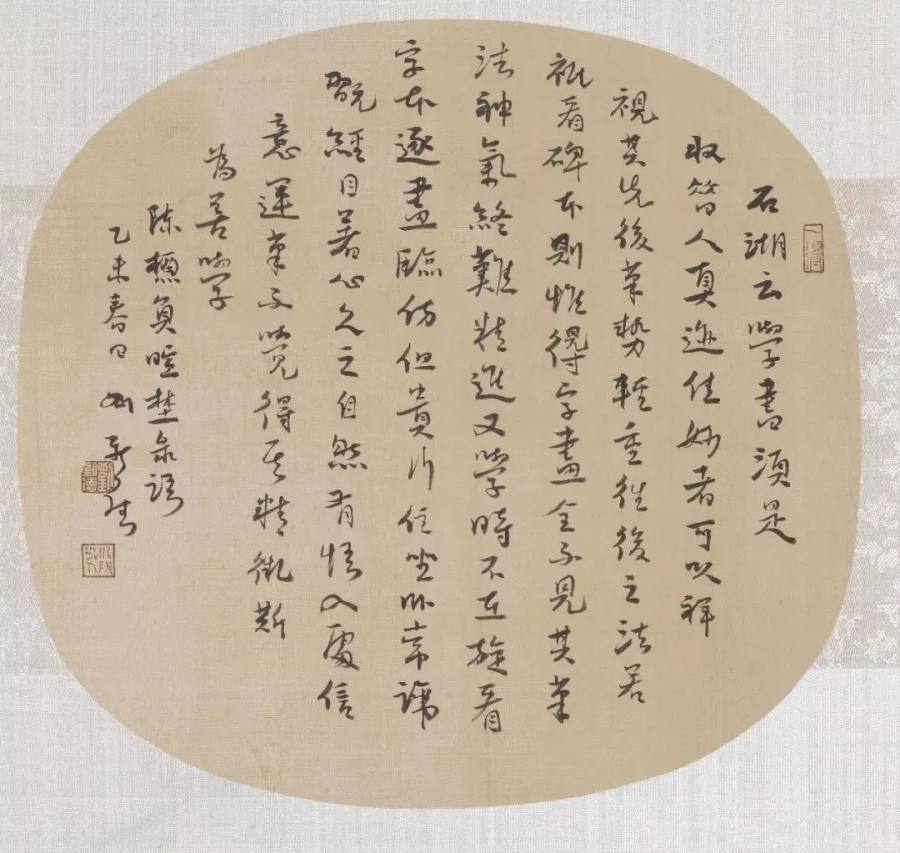 石湖云學書須是
収昔人真迹佳妙者可以詳
視其先後筆勢輕重徃復之法若
衹看碑本則惟得字畫全不見其筆
法神氣終難精進又學時不在旋看
字本逐畫臨仿但貴行住坐卧常諦
翫經目著心久之自然有悟入處信
意運筆不覺得其精微斯
為善學
陳槱負暄埜录語
乙未春日